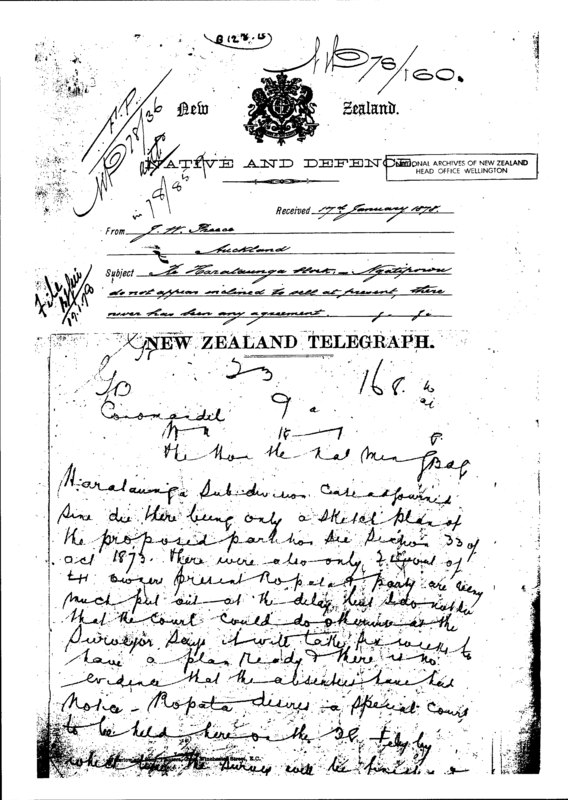 B 128. 15
NP 78/160.
N.P.
NP 78/36
78/85
New Zealand.
NATIVE AND DEFENCE
NATIONAL ARCHIVES OF NEW ZEALAND
HEAD OFFICE WELLINGTON
Received 17th January 1878.
From J. W. Preece
Auckland
Subject Te Harataunga Block — Ngatiporou
do not appear inclined to sell at present, there
never has been any agreement.
File
19.1.78
NEW ZEALAND TELEGRAPH.
23
168.
Coromandel 9 a
The Hon the Nat Min
Harataunga Subdivision Case adjourned
sine die there being only a sketch plan of
the proposed partition See Section 33 of
act 1873. There were also only 2 out of
owner present Ropata & party are very
much put out at the delay but I do not see
that the Court could do otherwise as the
Surveyor says it will take six weeks to
have a plan ready & there is no
evidence that the absentees have had
Notice — Ropata desires a special Court
to be held here on the 28 Feby by
which time the Survey will be finished &